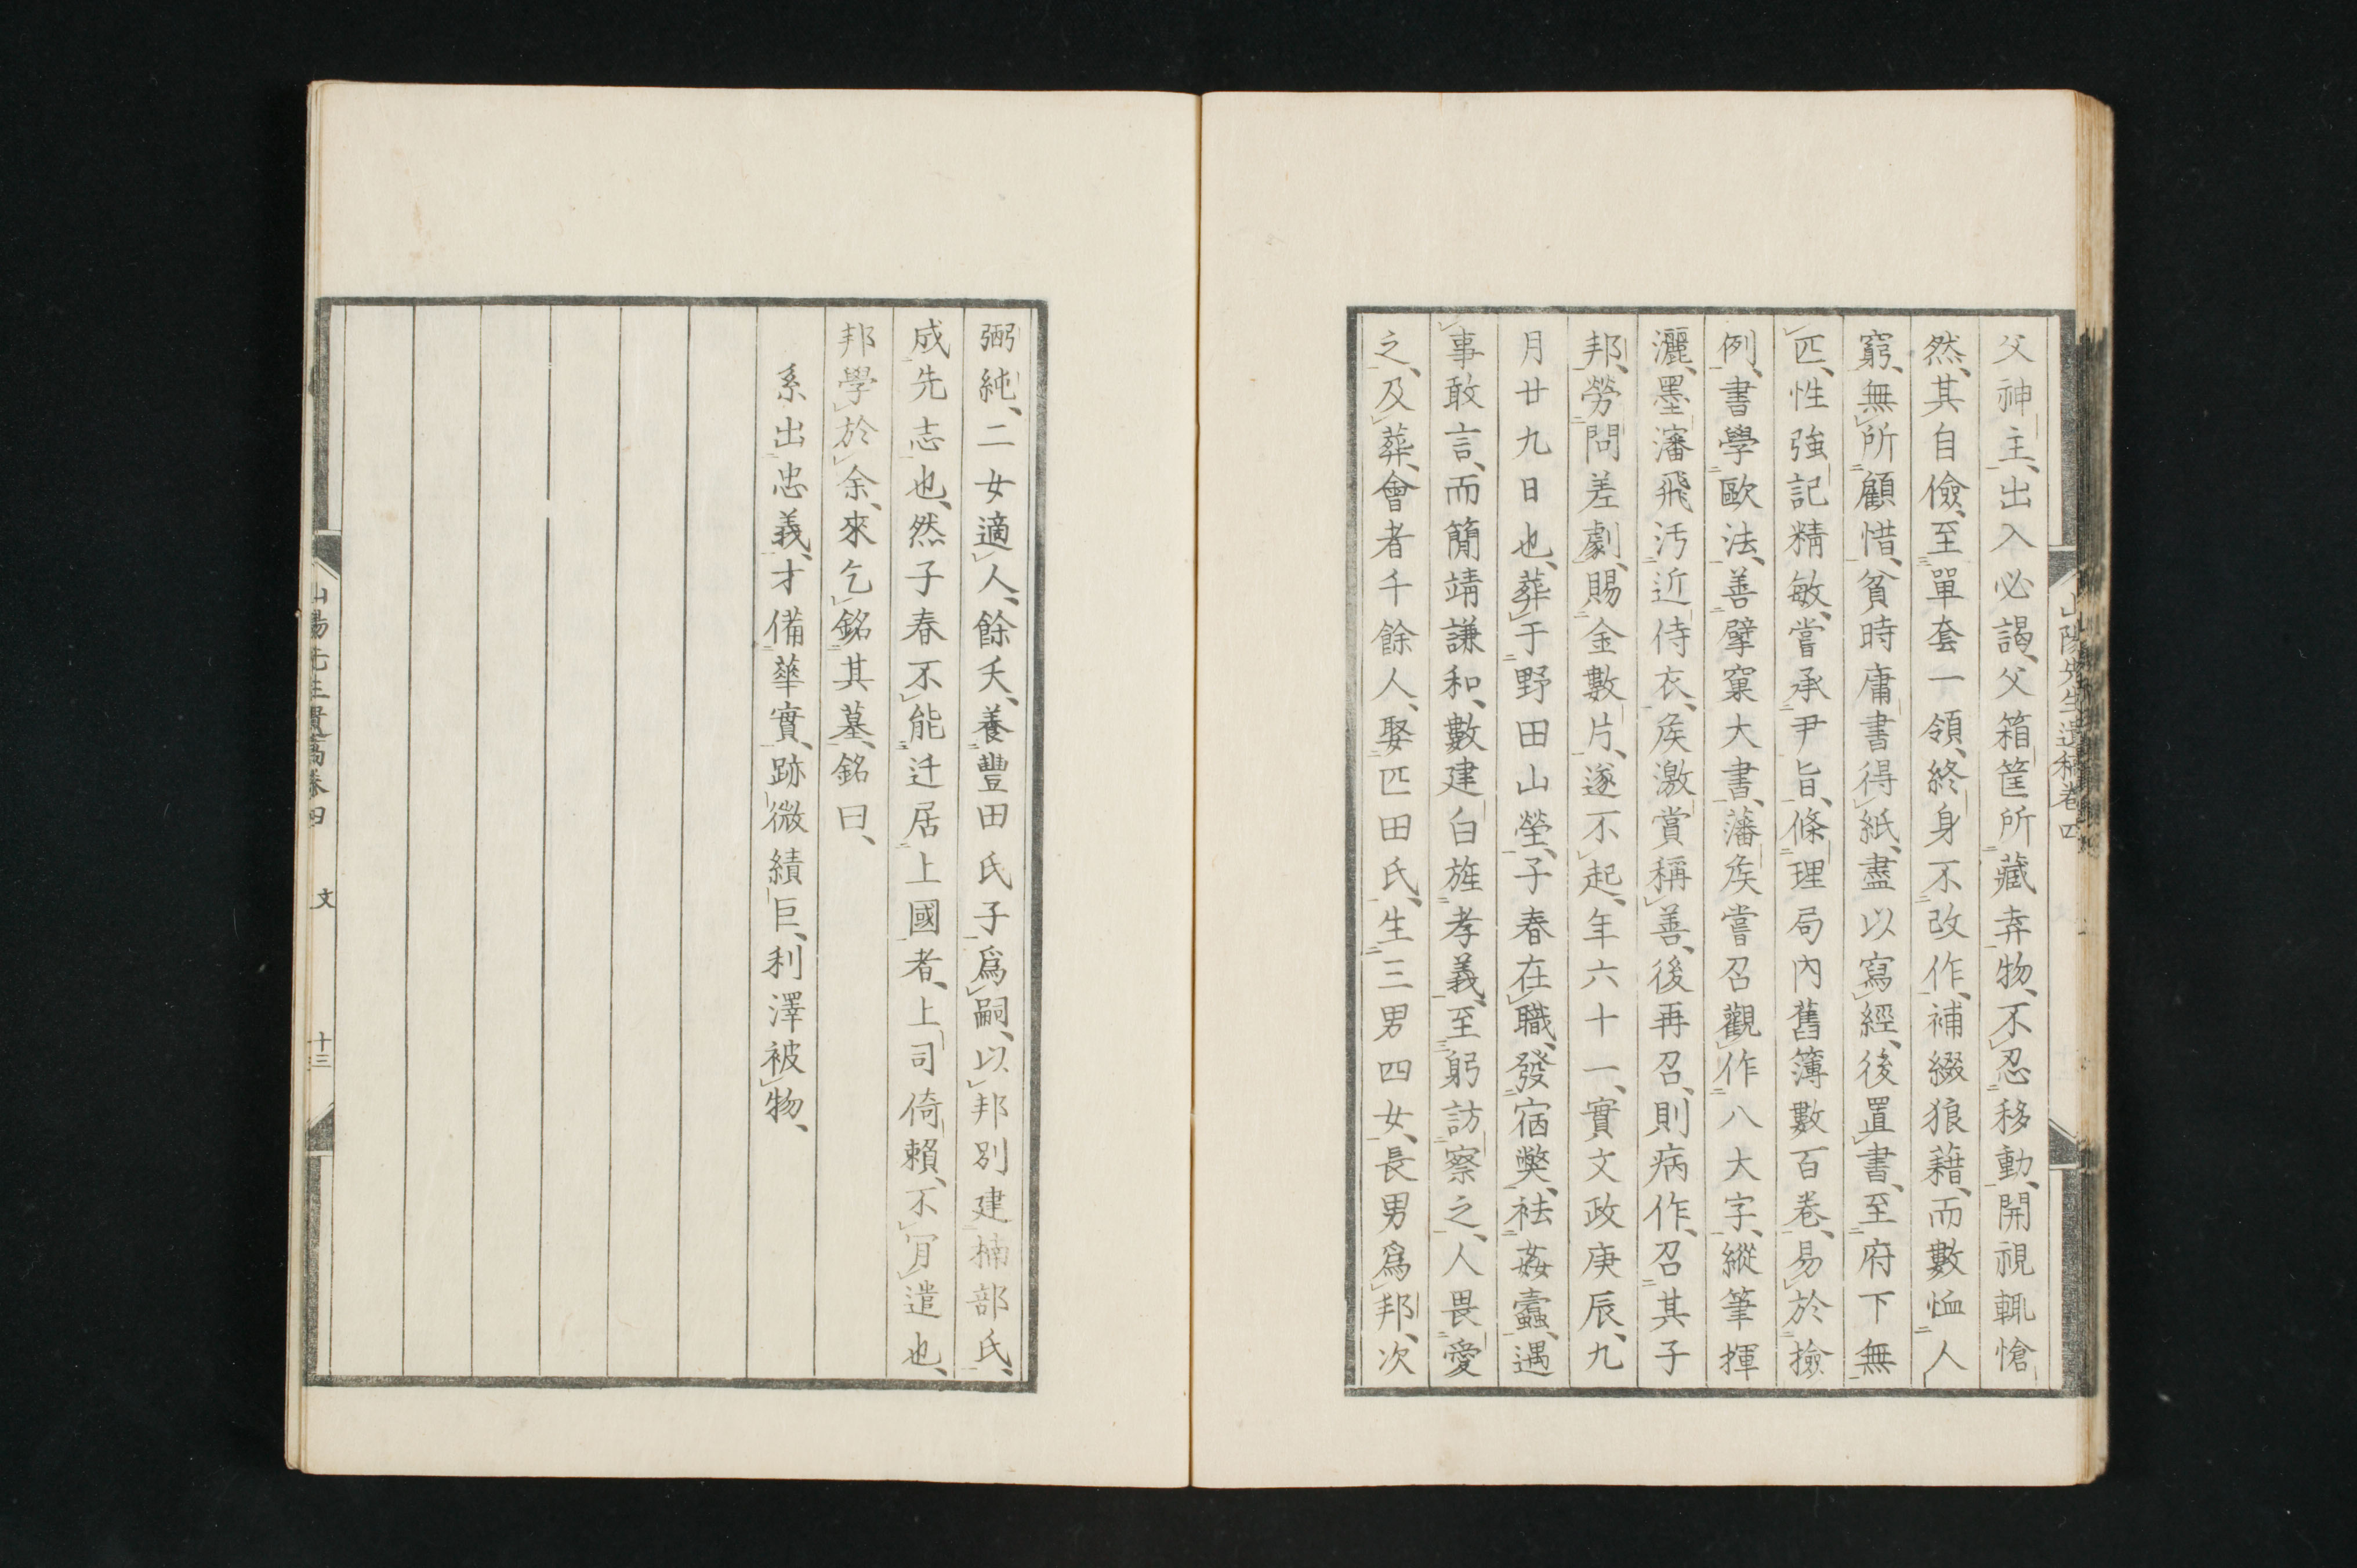 父神主、出入必謁、父箱筐所藏弆物、不忍移動、開視輒愴
然、其自儉、至單套一領、終身不改作、補綴狼藉、而數恤人
窮、無所顧惜、貧時庸書得紙、盡以寫經、後置書、至府下無
匹、性強記精敏、嘗承尹旨、條理局內舊簿數百卷、易於撿
例、書學歐法、善擘窠大書、藩矦嘗召觀作八大字、縱筆揮
灑、墨瀋飛汚近侍衣、矦激賞稱善、後再召、則病作、召其子
邦、勞問差劇、賜金數片、遂不起、年六十一、實文政庚辰、九
月廿九日也、葬于野田山塋、子春在職、發宿獘、祛姦蠹、遇
事敢言、而簡靖謙和、數建白旌孝義、至躬訪察之、人畏愛
之、及葬、會者千餘人、娶匹田氏、生三男四女、長男爲邦、次
弼純、二女適人、餘夭、養豐田氏子爲嗣、以邦別建楠部氏、
成先志也、然子春不能迁居上國者、上司倚賴、不肎遣也、
邦學於余、來乞銘其墓、銘曰、
系出忠義、才備華實、跡微績巨、利澤被物、
山陽先生遺稿卷四
山陽先生遺稿卷四 文 十三